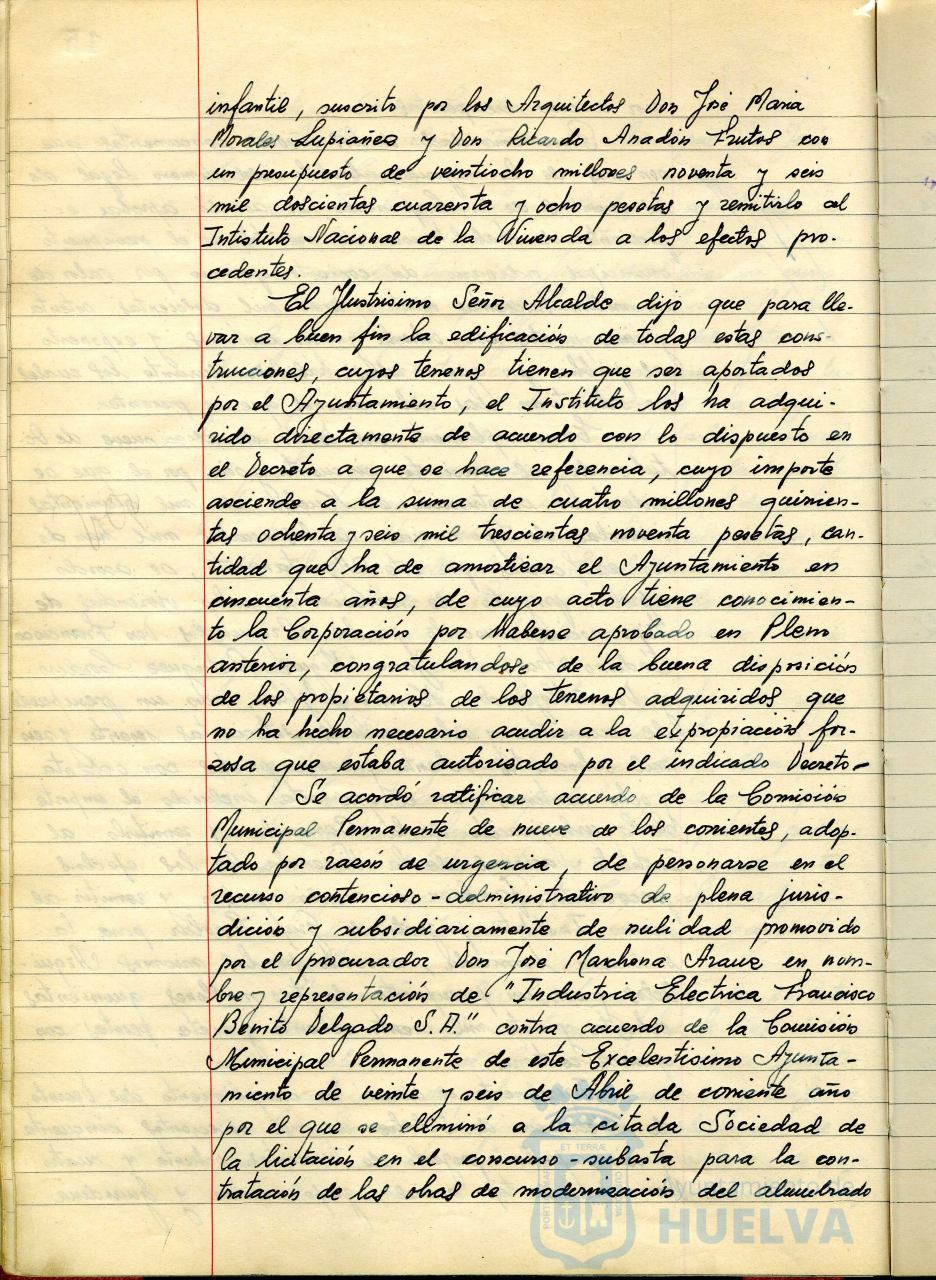 infantil, suscrito por los Arquitectos Don José Maria
Morales Lupiañez y Don Ricardo Anadón Frutos con
un presupuesto de veintiocho millones noventa y seis
mil doscientas cuarenta y ocho pesetas y remitirlo al
Intistuto Nacional de la Vivienda a los efectos pro-
cedentes.
El Ilustrisimo Señor Alcalde dijo que para lle-
var a buen fin la edificación de todas estas cons-
trucciones, cuyos terrenos tienen que ser aportados
por el Ayuntamiento, el Instituto los ha adqui-
rido directamente de acuerdo con lo dispuesto en
el Decreto a que se hace referencia, cuyo importe
asciende a la suma de cuatro millones quinien-
tas ochenta y seis mil trescientas noventa pesetas, can-
tidad que ha de amortizar el Ayuntamiento en
cincuenta años, de cuyo acto tiene conocimien-
to la Corporación por haberse aprobado en Pleno
anterior, congratulandose de la buena disposición
de los propietarios de los terrenos adquiridos que
no ha hecho necesario acudir a la expropiación for-
zosa que estaba autorizado por el indicado Decreto-
Se acordó ratificar acuerdo de la Comisión
Municipal Permanente de nueve de los corrientes, adop-
tado por razón de urgencia, de personarse en el
recurso contencioso-administrativo de plena juris-
dición y subsidiariamente de nulidad promovido
por el procurador Don José Marchena Arauz en nom-
bre y representación de "Industria Electrica Francisco
Benito Delgado S.A." contra acuerdo de la Comisión
Municipal Permanente de este Excelentisimo Ayunta-
miento de veinte y seis de Abril de corriente año
por el que se eliminó a la citada Sociedad de
la licitación en el concurso-subasta para la con-
tratación de las obras de modernización del alumbrado
Ayuntamiento de
HUELVA